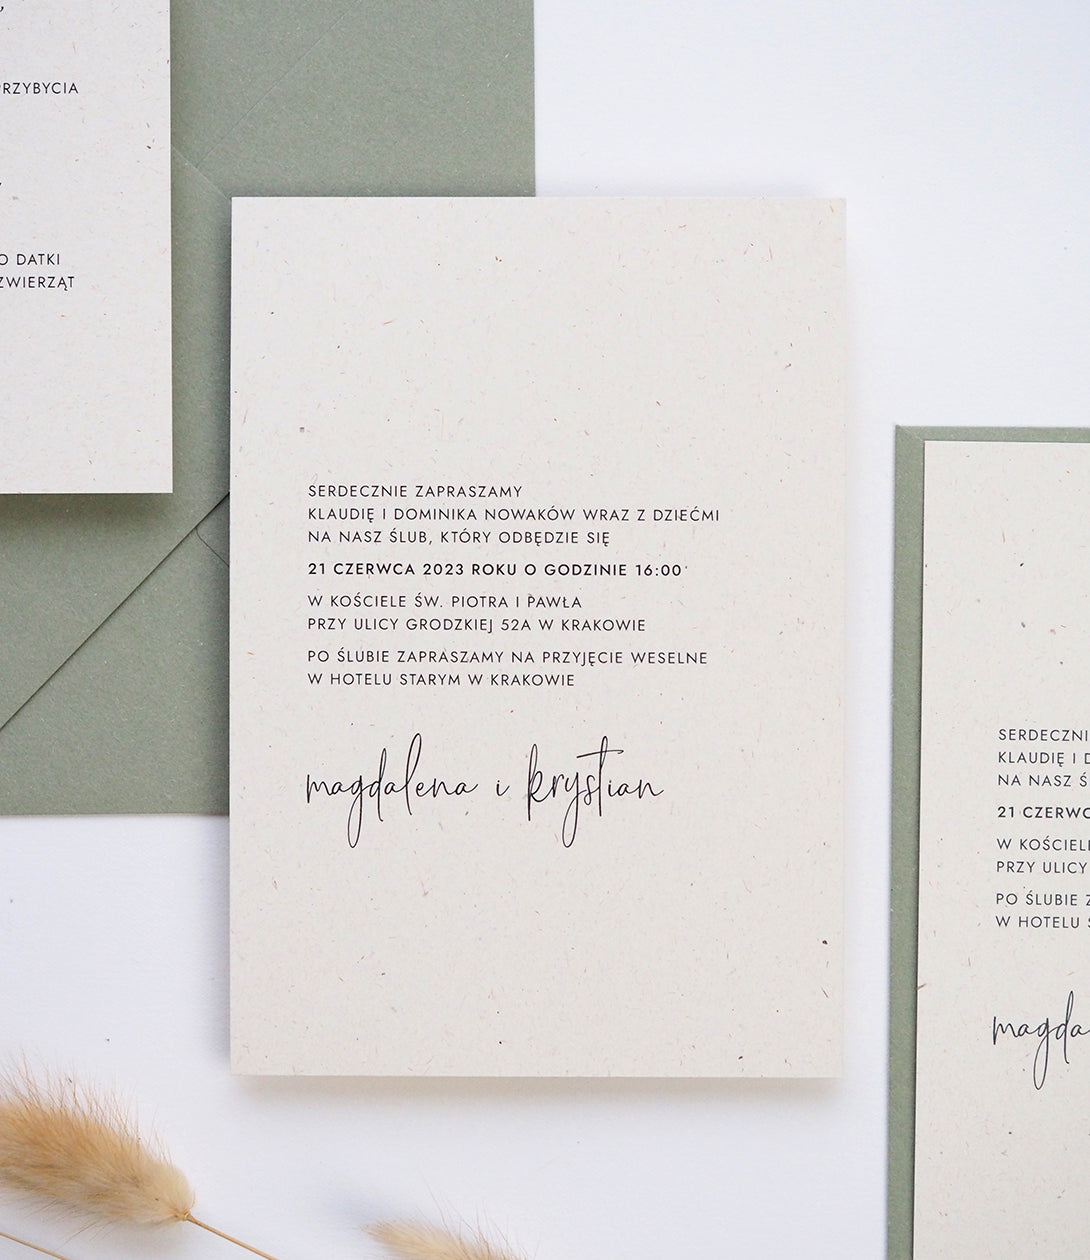 PRZYBYCIA
O DATKI
ZWIERZĄT
SERDECZNIE ZAPRASZAMY
KLAUDIĘ I DOMINIKA NOWAKÓW WRAZ Z DZIEĆMI
NA NASZ ŚLUB, KTÓRY ODBĘDZIE SIĘ
21 CZERWCA 2023 ROKU O GODZINIE 16:00
W KOŚCIELE ŚW. PIOTRA I PAWŁA
PRZY ULICY GRODZKIEJ 52A W KRAKOWIE
PO ŚLUBIE ZAPRASZAMY NA PRZYJĘCIE WESELNE
W HOTELU STARYM W KRAKOWIE
magdalena i krystian
SERDECZNI
KLAUDIĘ I D
NA NASZ Ś
21 CZERWC
W KOŚCIELE
PRZY ULICY
PO ŚLUBIE Z
W HOTELU S
magda